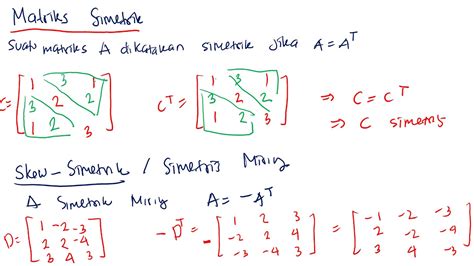 Matriks Simetrik
Suatu matriks A dikatakan simetrik jika A = A^T
C = [1 3 1; 3 2 2; 1 2 3] C^T = [1 3 1; 3 2 2; 1 2 3] ⇒ C = C^T
⇒ C simetris
Skew-Simetrik / Simetris Miring
A Simetrik Miring A = -A^T
D = [1 -2 -3; 2 2 -4; 3 4 3] -D^T = -[1 2 3; -2 2 4; -3 -4 3] = [-1 -2 -3; 2 -2 -4; 3 4 -3]